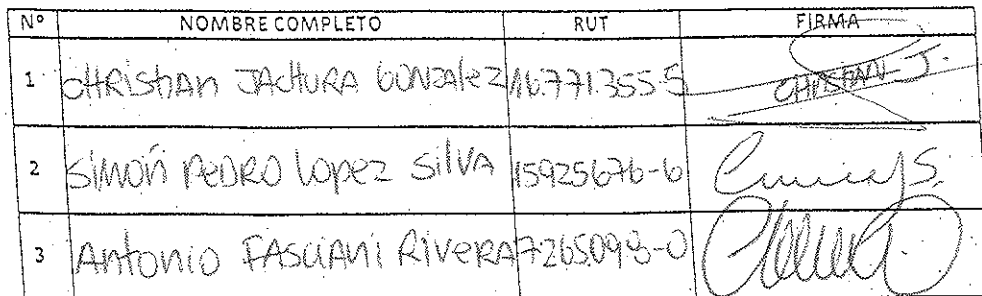 Nº NOMBRE COMPLETO RUT FIRMA
1 CHRISTIAN JACHURA GONZALEZ 16.771.355-5 CHRISTIAN J.
2 SIMOÑ PEDRO LOPEZ SILVA 15925676-6
3 Antonio FASCIANI RIVERA 7.265.098-0